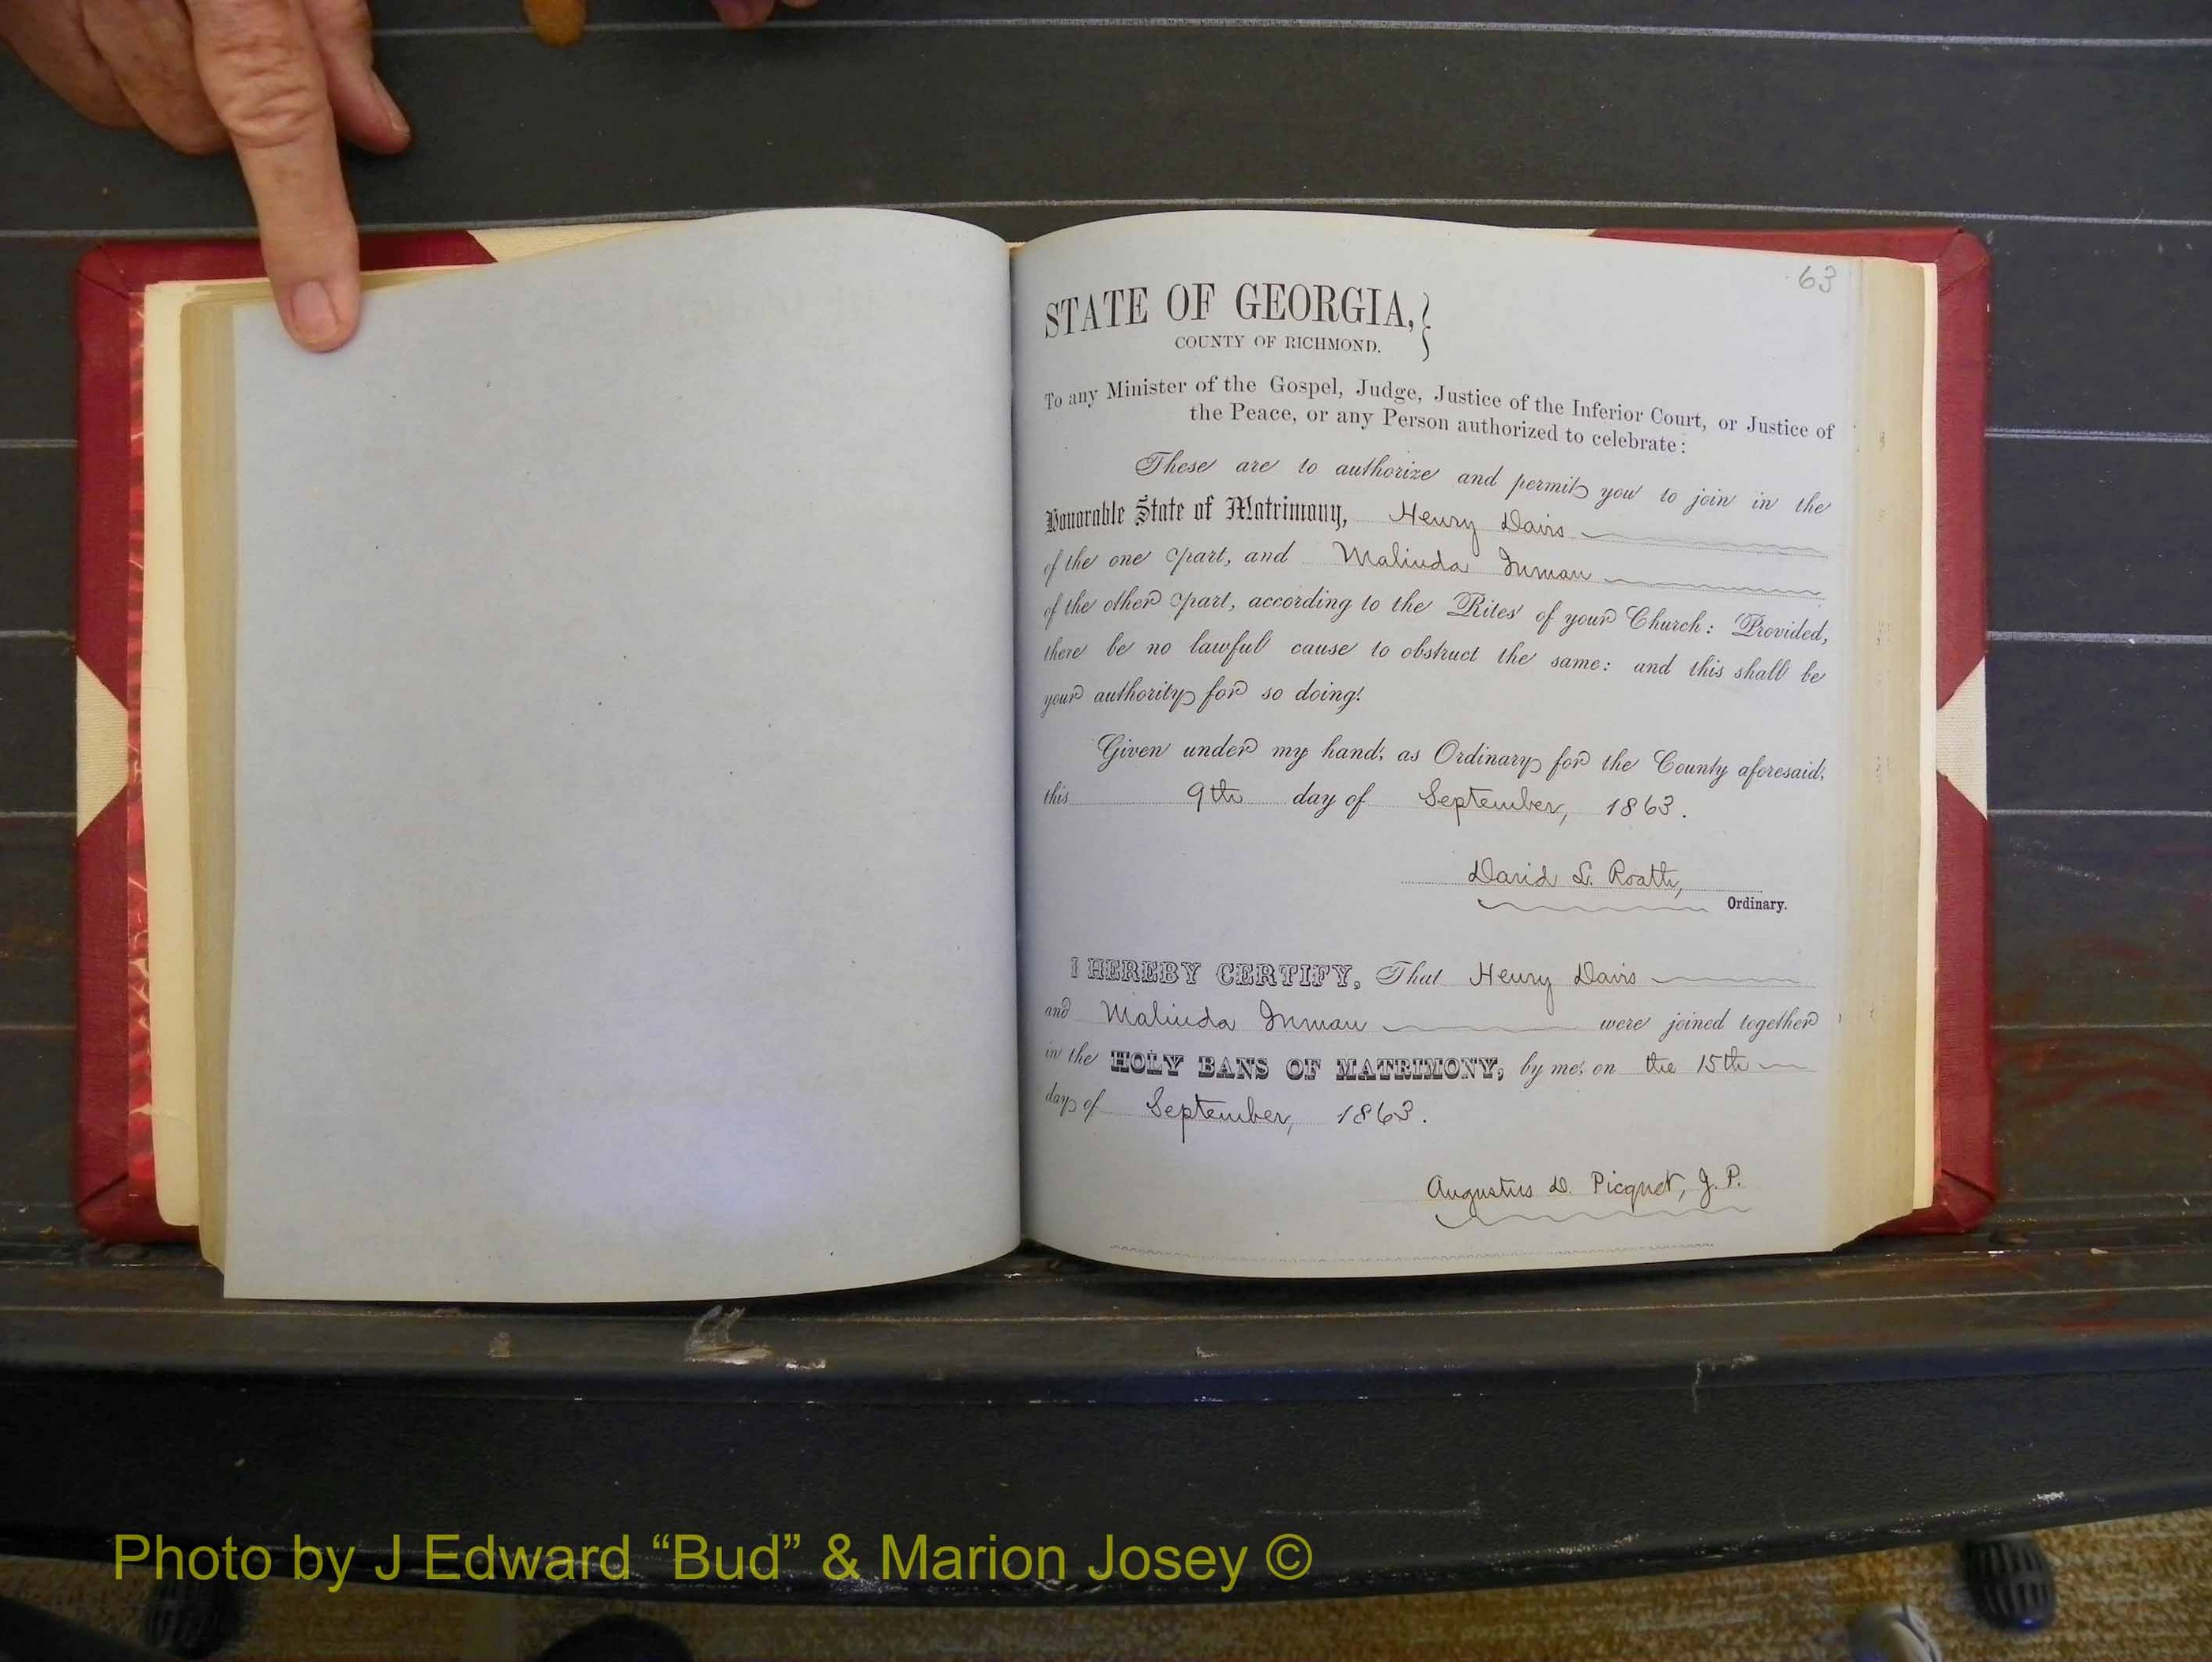 63
STATE OF GEORGIA,
COUNTY OF RICHMOND.
To any Minister of the Gospel, Judge, Justice of the Inferior Court, or Justice of
the Peace, or any Person authorized to celebrate:
These are to authorize and permit you to join in the
Honorable State of Matrimony, Henry Davis
of the one part, and Malinda Inman
of the other part, according to the Rites of your Church: Provided,
there be no lawful cause to obstruct the same: and this shall be
your authority for so doing!
Given under my hand, as Ordinary for the County aforesaid,
this 9th day of September, 1863.
David L. Roath,
Ordinary.
I HEREBY CERTIFY, That Henry Davis
and Malinda Inman were joined together
in the HOLY BANS OF MATRIMONY, by me, on the 15th
day of September, 1863.
Augustus D. Picquet, J. P.
Photo by J Edward “Bud” & Marion Josey ©